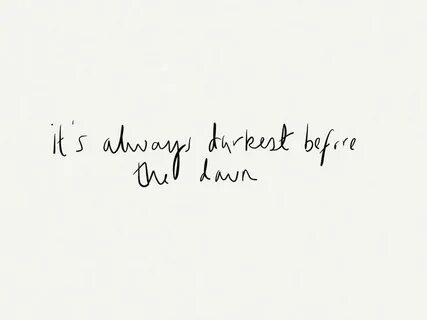 it's always darkest before
the dawn